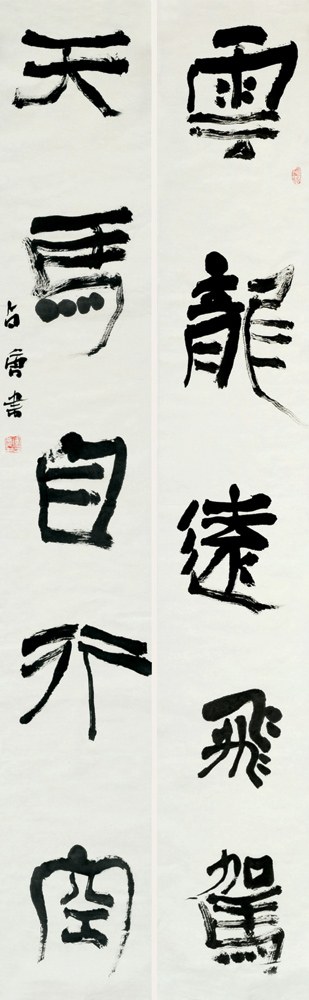 雲龍遠飛駕
天馬自行空
占唐書